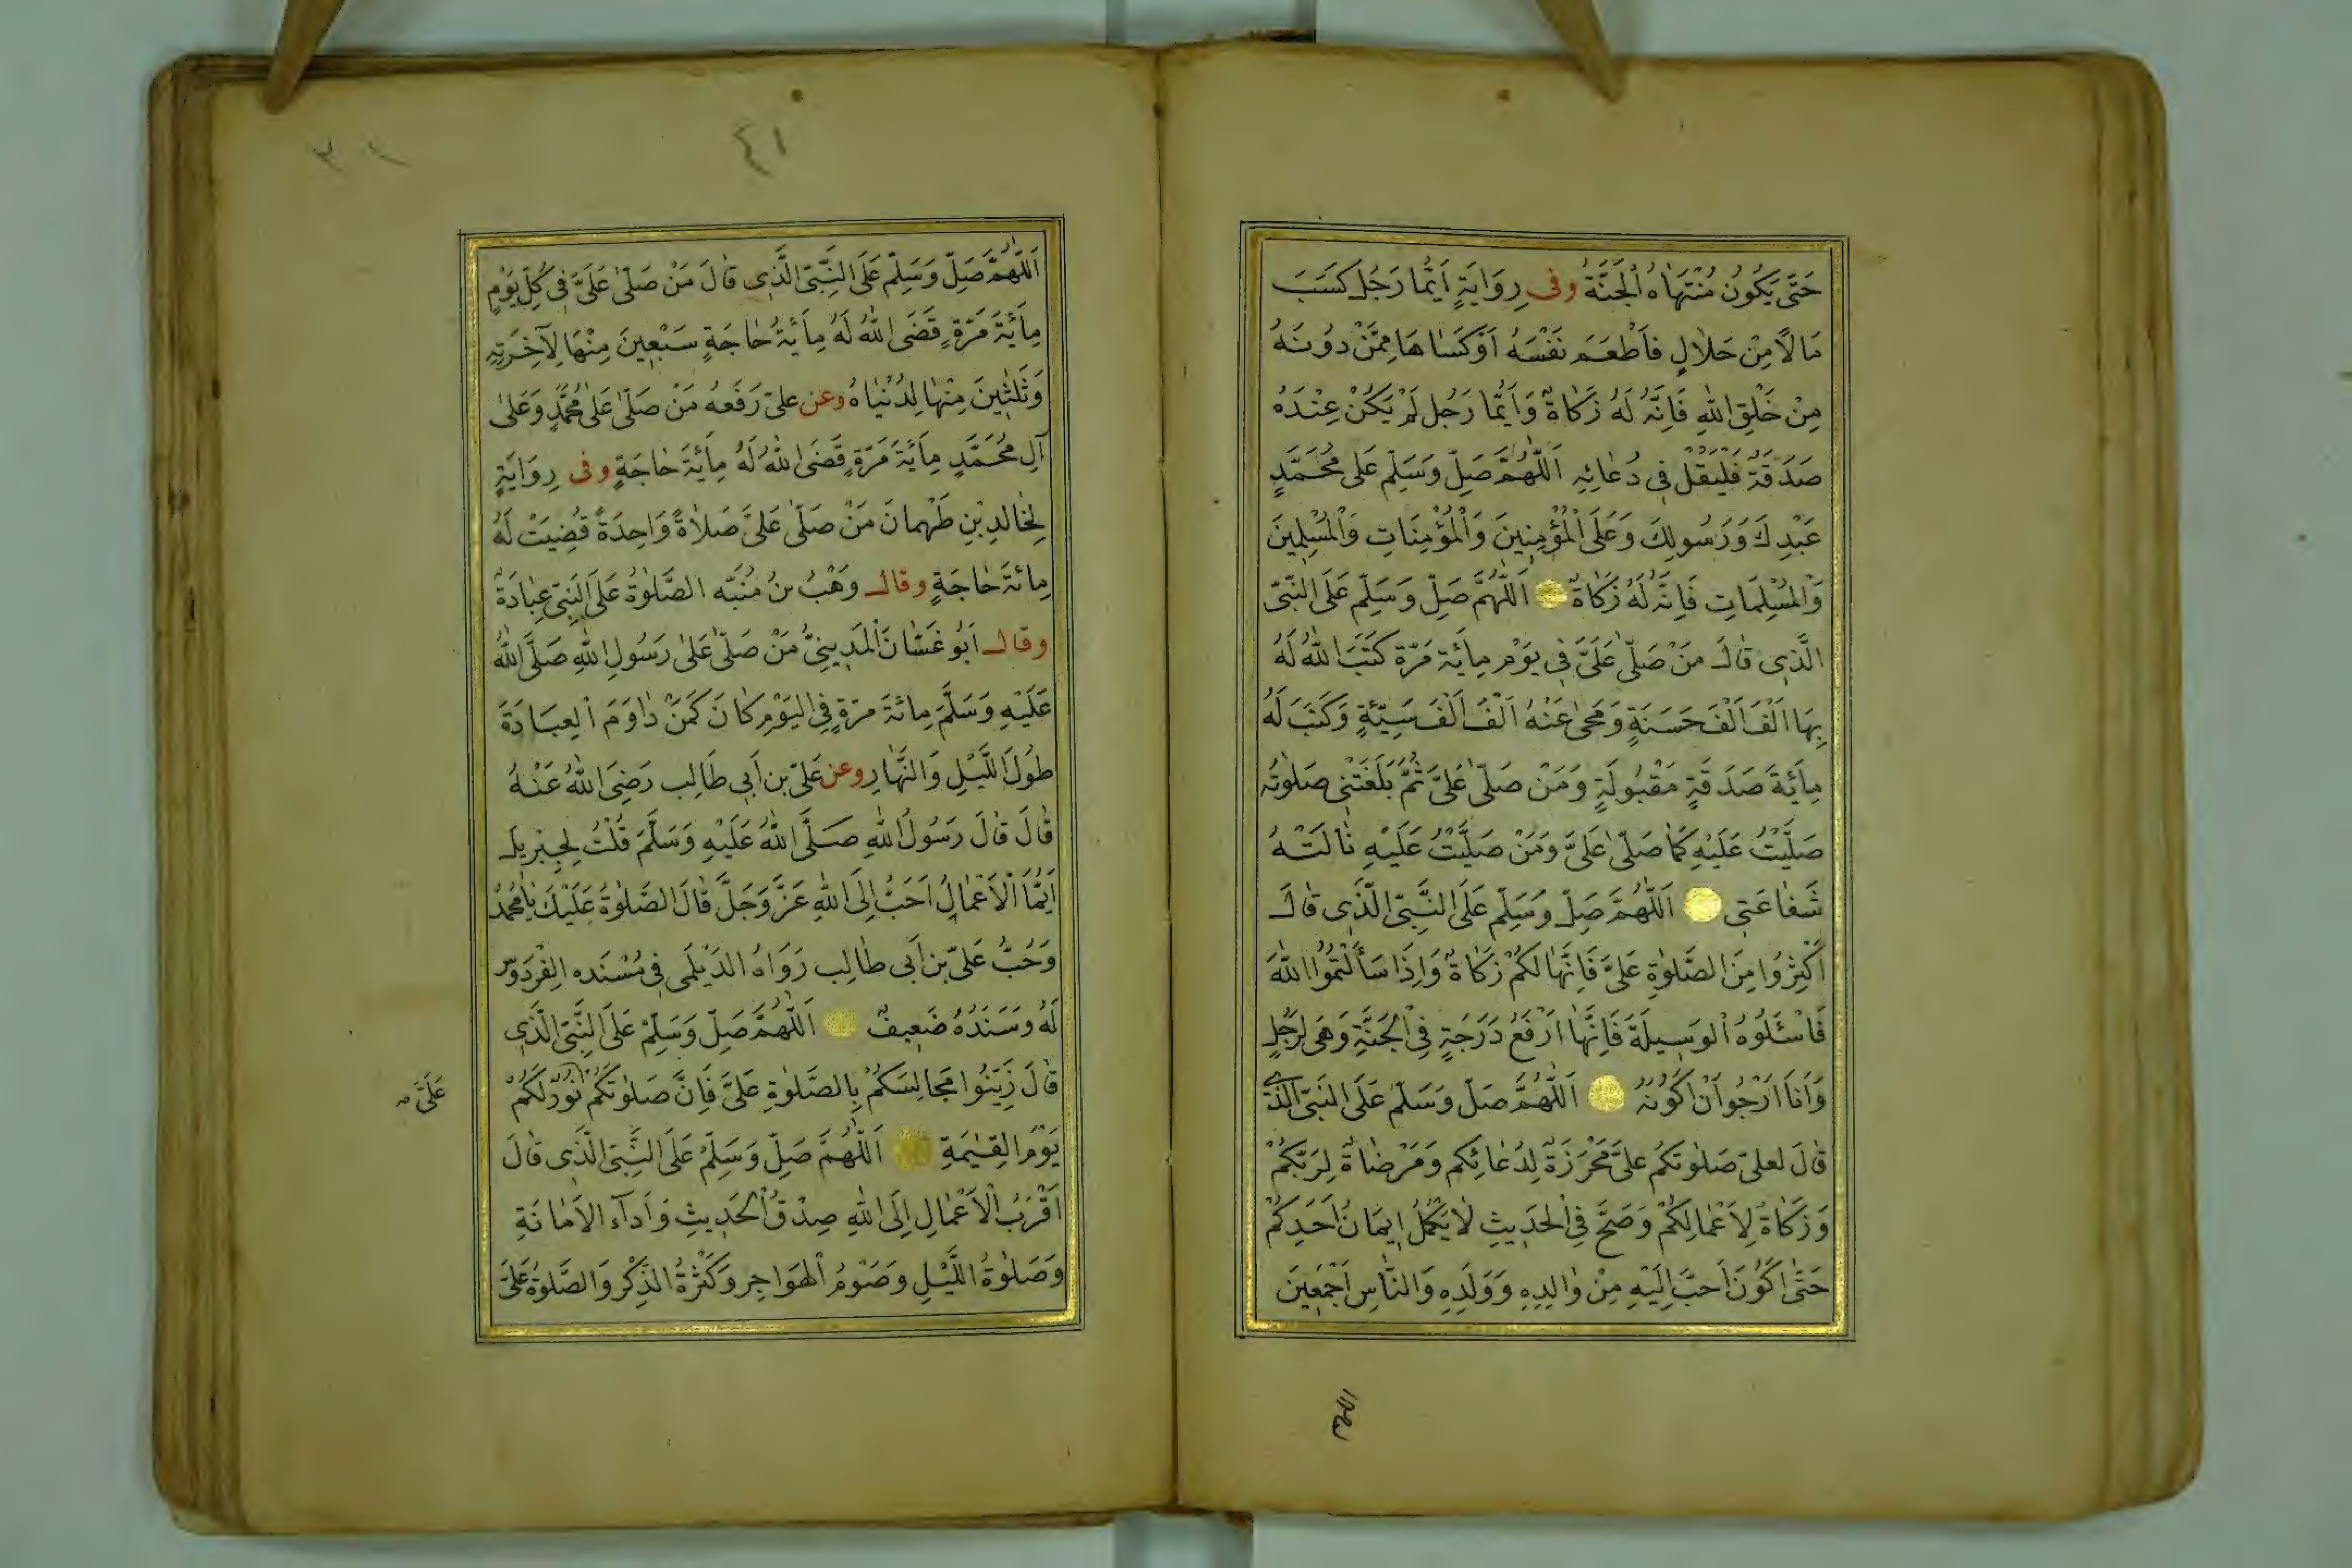 حَتّٰى يَكُونُ مُنْتَهَاهُ الْجَنَّةُ وفى رِوَايَةٍ اَيُّمَا رَجُلٍ كَسَبَ
مَالًا مِنْ حَلَالٍ فَاَطْعَمَ نَفْسَهُ اَوْ كَسَاهَا مِمَّنْ دُونَهُ
مِنْ خَلْقِ اللّٰهِ فَاِنَّهُ لَهُ زَكَاةٌ وَاَيُّمَا رَجُلٍ لَمْ يَكُنْ عِنْدَهُ
صَدَقَةٌ فَلْيَقُلْ فِى دُعَائِهِ اَللّٰهُمَّ صَلِّ وَسَلِّمْ عَلٰى مُحَمَّدٍ
عَبْدِكَ وَرَسُولِكَ وَعَلَى الْمُؤْمِنِينَ وَالْمُؤْمِنَاتِ وَالْمُسْلِمِينَ
وَالْمُسْلِمَاتِ فَاِنَّهُ لَهُ زَكَاةٌ اَللّٰهُمَّ صَلِّ وَسَلِّمْ عَلَى النَّبِىِّ
الَّذِى قَالَ مَنْ صَلّٰى عَلَىَّ فِى يَوْمٍ مِائَةَ مَرَّةٍ كَتَبَ اللّٰهُ لَهُ
بِهَا اَلْفَ اَلْفَ حَسَنَةٍ وَمَحٰى عَنْهُ اَلْفَ اَلْفَ سَيِّئَةٍ وَكَتَبَ لَهُ
مِائَةَ صَدَقَةٍ مَقْبُولَةٍ وَمَنْ صَلّٰى عَلَىَّ ثُمَّ بَلَغَتْنِى صَلٰوتُهُ
صَلَّيْتُ عَلَيْهِ كَمَا صَلّٰى عَلَىَّ وَمَنْ صَلَّيْتُ عَلَيْهِ نَالَتْهُ
شَفَاعَتِى اَللّٰهُمَّ صَلِّ وَسَلِّمْ عَلَى النَّبِىِّ الَّذِى قَالَ
اَكْثِرُوا مِنَ الصَّلٰوةِ عَلَىَّ فَاِنَّهَا لَكُمْ زَكَاةٌ وَاِذَا سَأَلْتُمُوا اللّٰهَ
فَاسْئَلُوهُ الْوَسِيلَةَ فَاِنَّهَا اَرْفَعُ دَرَجَةٍ فِى الْجَنَّةِ وَهِىَ لِرَجُلٍ
وَاَنَا اَرْجُو اَنْ اَكُونَهُ اَللّٰهُمَّ صَلِّ وَسَلِّمْ عَلَى النَّبِىِّ الَّذِى
قَالَ لعلىّ صَلٰوتَكُمْ عَلَىَّ مَحْرَزَةٌ لِدُعَائِكُمْ وَمَرْضَاةٌ لِرَبِّكُمْ
وَزَكَاةٌ لِاَعْمَالِكُمْ وَصَحَّ فِى الْحَدِيثِ لَا يَكْمُلُ اِيمَانُ اَحَدِكُمْ
حَتّٰى اَكُونَ اَحَبَّ اِلَيْهِ مِنْ وَالِدِهِ وَوَلَدِهِ وَالنَّاسِ اَجْمَعِينَ
٤١
اَللّٰهُمَّ صَلِّ وَسَلِّمْ عَلَى النَّبِىِّ الَّذِى قَالَ مَنْ صَلّٰى عَلَىَّ فِى كُلِّ يَوْمٍ
مِائَةَ مَرَّةٍ قَضَى اللّٰهُ لَهُ مِائَةَ حَاجَةٍ سَبْعِينَ مِنْهَا لِآخِرَتِهِ
وَثَلٰثِينَ مِنْهَا لِدُنْيَاهُ وعن علىّ رَفَعَهُ مَنْ صَلّٰى عَلٰى مُحَمَّدٍ وَعَلٰى
آلِ مُحَمَّدٍ مِائَةَ مَرَّةٍ قَضَى اللّٰهُ لَهُ مِائَةَ حَاجَةٍ وفى رِوَايَةٍ
لِخَالِدِ بْنِ طَهْمَانَ مَنْ صَلّٰى عَلَىَّ صَلَاةً وَاحِدَةً قُضِيَتْ لَهُ
مِائَةَ حَاجَةٍ وقال وَهْبُ بنُ مُنَبِّه الصَّلٰوةُ عَلَى النَّبِىِّ عِبَادَةٌ
وقال اَبُو غَسَّانَ الْمَدِينِىُّ مَنْ صَلّٰى عَلٰى رَسُولِ اللّٰهِ صَلَّى اللّٰهُ
عَلَيْهِ وَسَلَّمَ مِائَةَ مَرَّةٍ فِى الْيَوْمِ كَانَ كَمَنْ دَاوَمَ الْعِبَادَةَ
طُولَ اللَّيْلِ وَالنَّهَارِ وعن عَلىّ بن اَبِى طَالِب رَضِىَ اللّٰهُ عَنْهُ
قَالَ قَالَ رَسُولُ اللّٰهِ صَلَّى اللّٰهُ عَلَيْهِ وَسَلَّمَ قُلْتُ لِجِبْرِيلَ
اَيُّمَا الْاَعْمَالِ اَحَبُّ اِلَى اللّٰهِ عَزَّ وَجَلَّ قَالَ الصَّلٰوةُ عَلَيْكَ يَا مُحَمَّدُ
وَحُبُّ عَلىّ بن اَبى طَالِب رَوَاهُ الدَّيْلَمِى فِى مُسْنَده الْفِرْدَوْس
لَهُ وَسَنَدُهُ ضَعِيفٌ اَللّٰهُمَّ صَلِّ وَسَلِّمْ عَلَى النَّبِىِّ الَّذِى
قَالَ زَيِّنُوا مَجَالِسَكُمْ بِالصَّلٰوةِ عَلَىَّ فَاِنَّ صَلٰوتَكُمْ نُورٌ لَكُمْ
عَلَىَّ
يَوْمَ الْقِيٰمَةِ اَللّٰهُمَّ صَلِّ وَسَلِّمْ عَلَى النَّبِىِّ الَّذِى قَالَ
اَقْرَبُ الْاَعْمَالِ اِلَى اللّٰهِ صِدْقُ الْحَدِيثِ وَاَدَاءُ الْاَمَانَةِ
وَصَلٰوةُ اللَّيْلِ وَصَوْمُ الْهَوَاجِر وَكَثْرَةُ الذِّكْرِ وَالصَّلٰوةُ عَلَىَّ